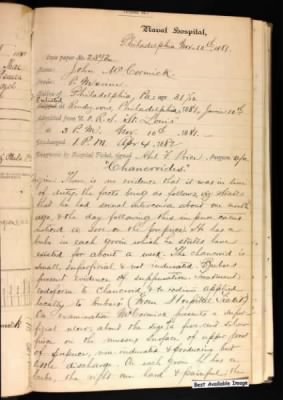 Naval Hospital,
Philadelphia Nov. 10th 1881.
Case paper No.
Name John McCormick
Rate P. Marine
Nativity Philadelphia, Pa. age 21
Enlisted Rendezvous Philadelphia, 1881, June
Admitted from U.S.R.S. "St. Louis"
at 3 P.M. Nov. 10th 1881.
Discharged 1 P.M. Apr 4 1882
Diagnosis by Hospital Ticket, signed Abel F. Price, Surgeon
"Chancroides."
Origin: There is no evidence that it was in line
of duty, the facts being as follows: he states
that he had sexual intercourse about one month
ago, & the day following this impure
noticed a sore on the prepuce. He has a
bubo in each groin which he states have
existed for about a week. The chancroid is
small, superficial & not indurated. Buboes
present evidence of suppuration. Treatment:
iodoform to chancroid, & tr. iodine applied
locally to buboes. (From Hospital Ticket)
On examination McCormick presents a super-
ficial ulcer, about the size of a five cent silver
piece on the mucous surface of upper part
of prepuce, non-indurated & producing but
little discharge. On each groin he has a
bubo, the right one hard & painful, the
Best Available Image